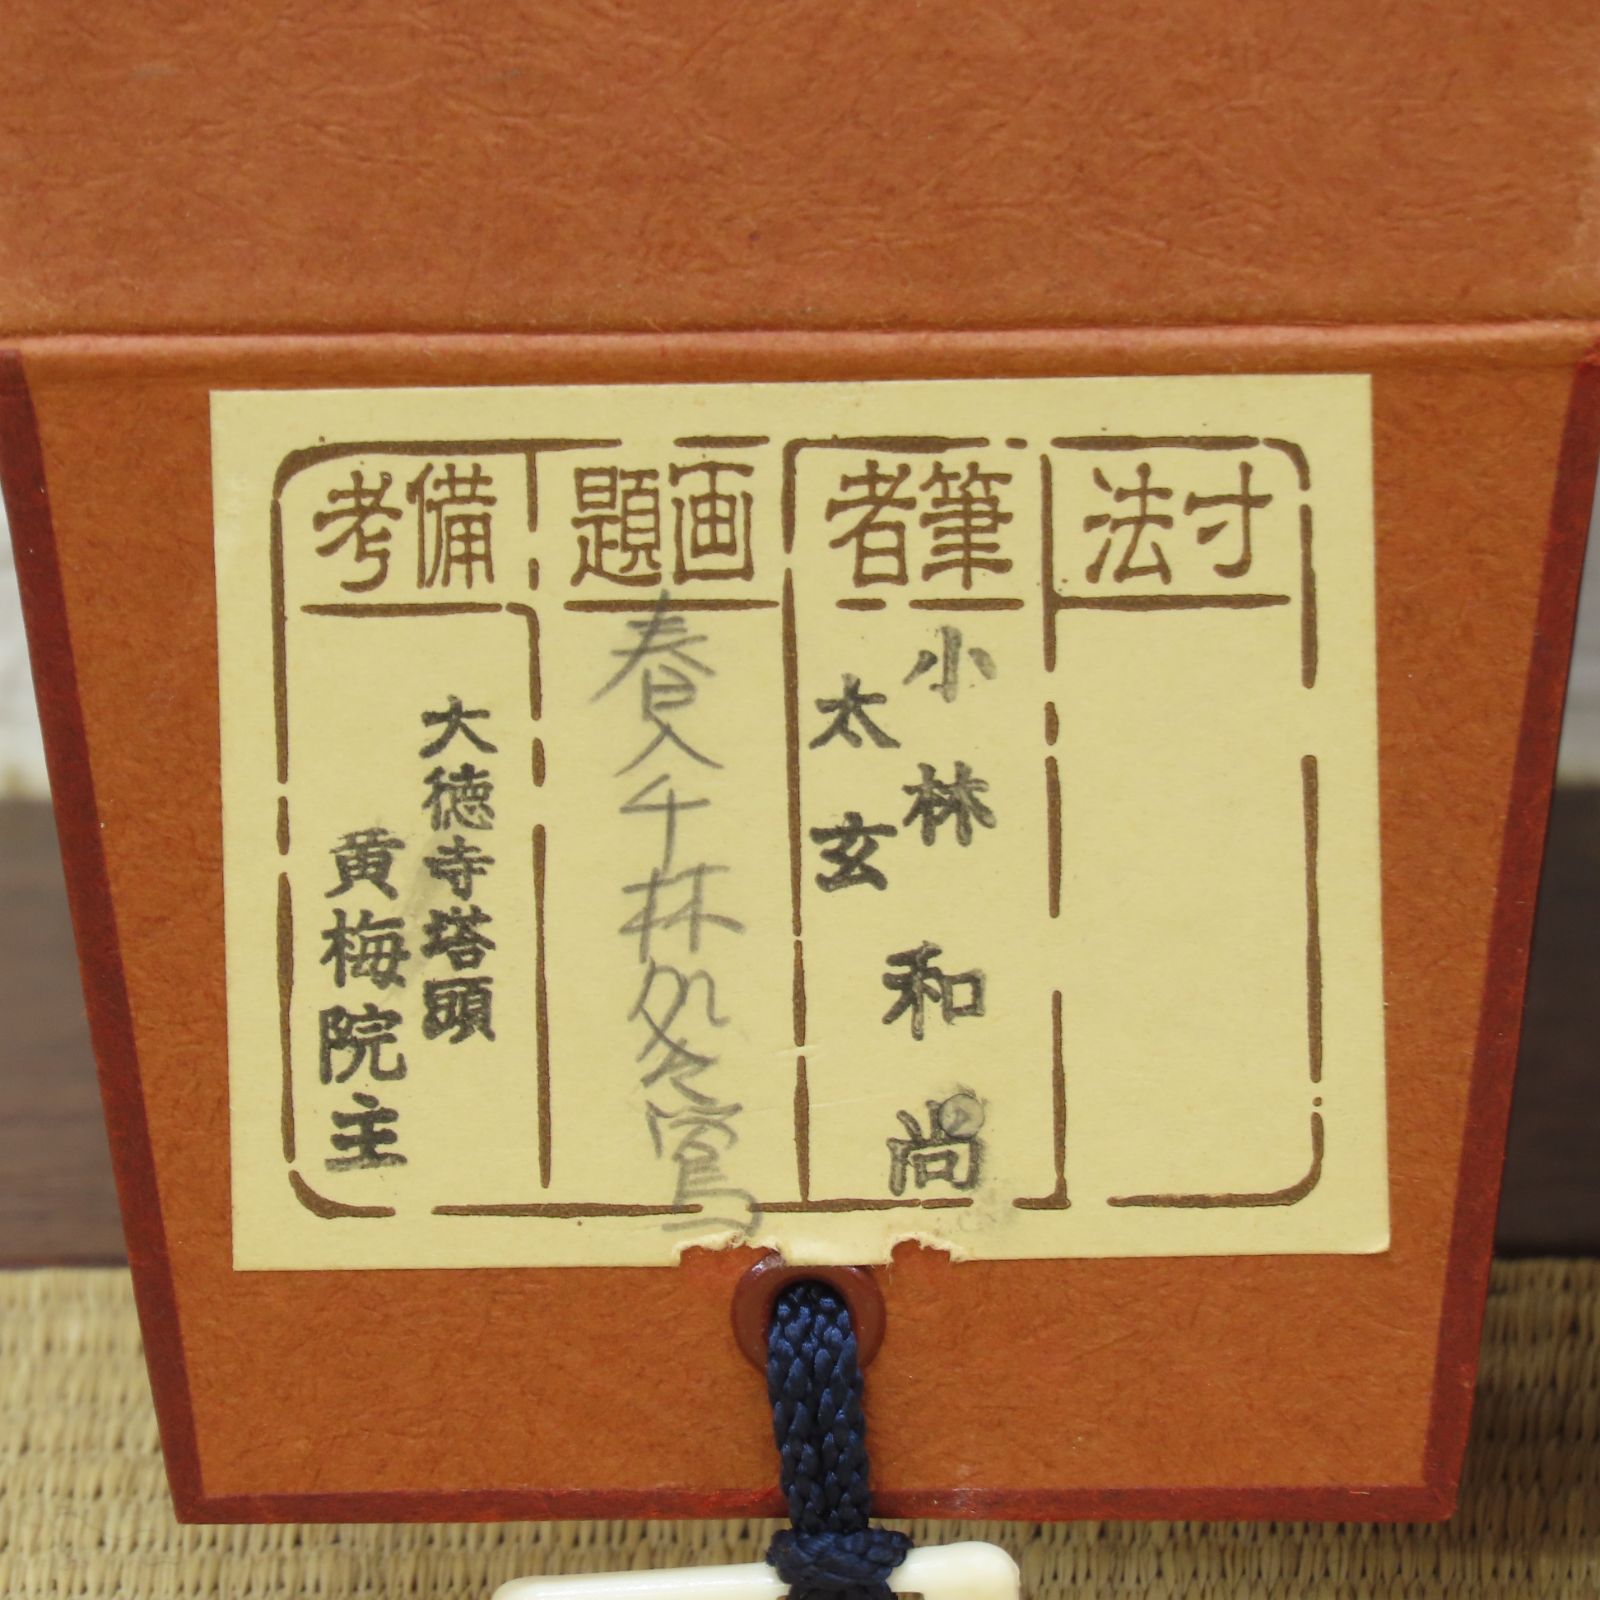 寸法
筆者
小林和尚
太玄
画題
春入千林処々鶯
備考
大徳寺塔頭
黄梅院主